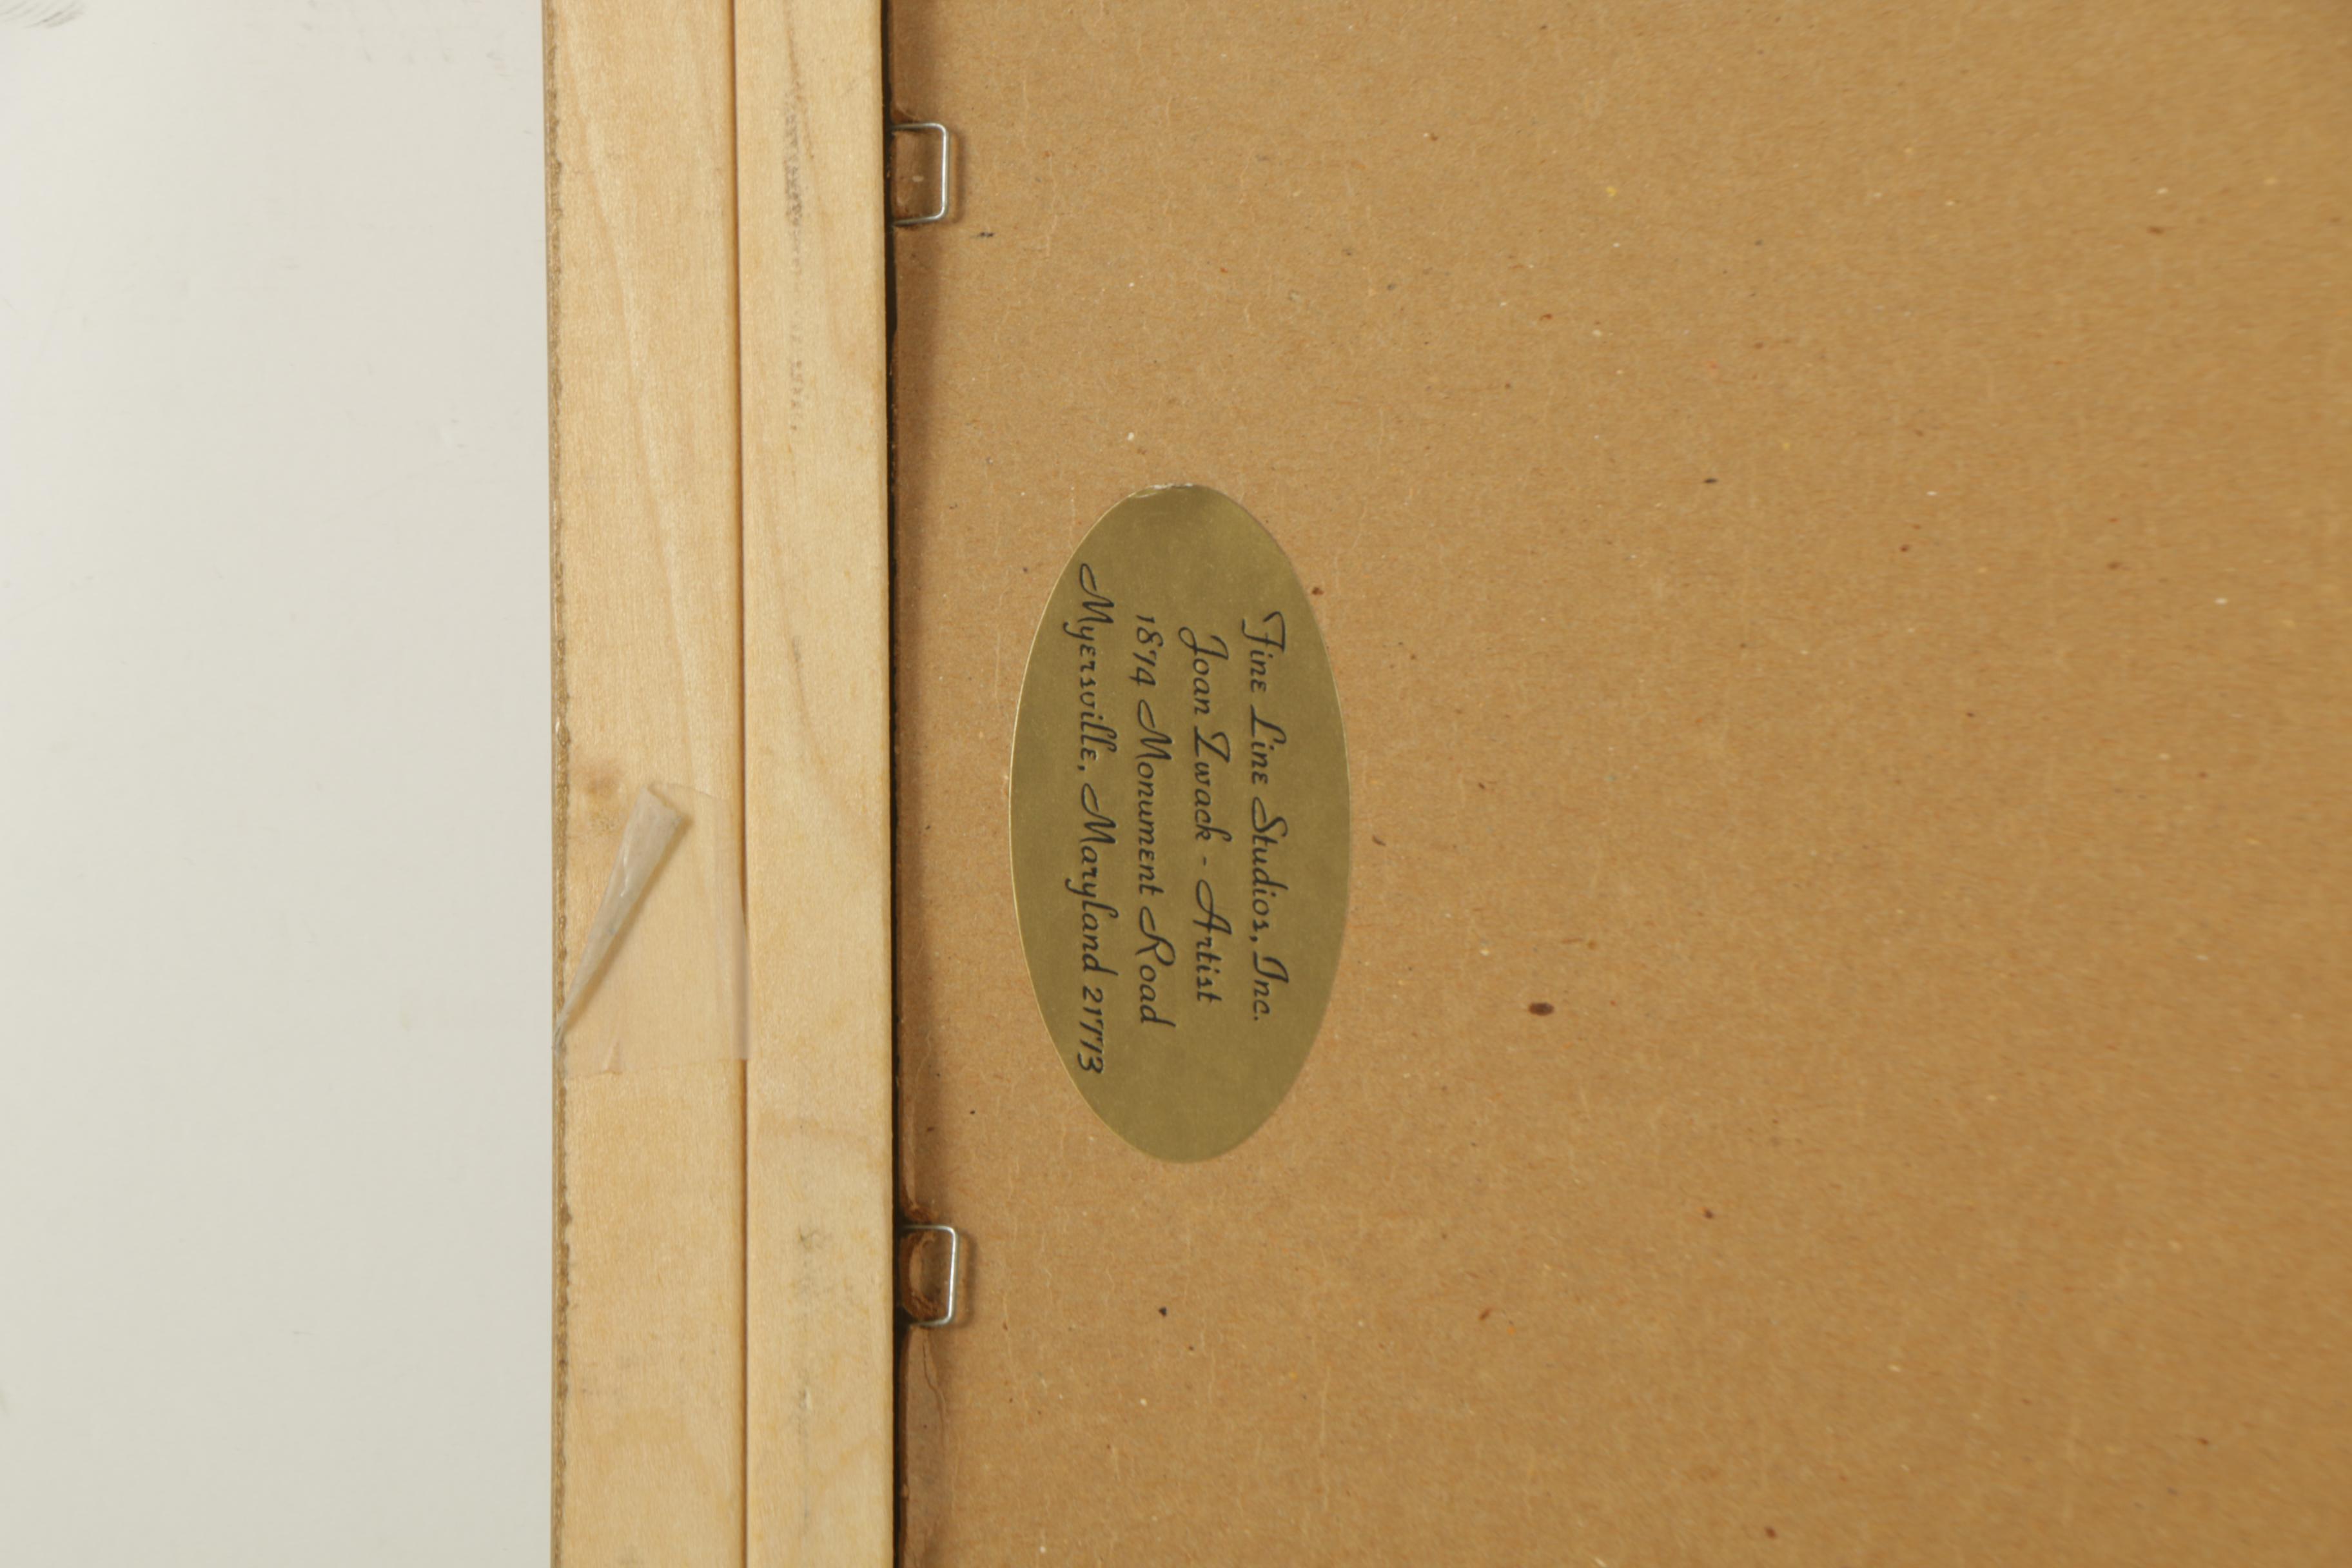 Fine Line Studios, Inc.
Joan Zwack - Artist
1874 Monument Road
Myersville, Maryland 21773